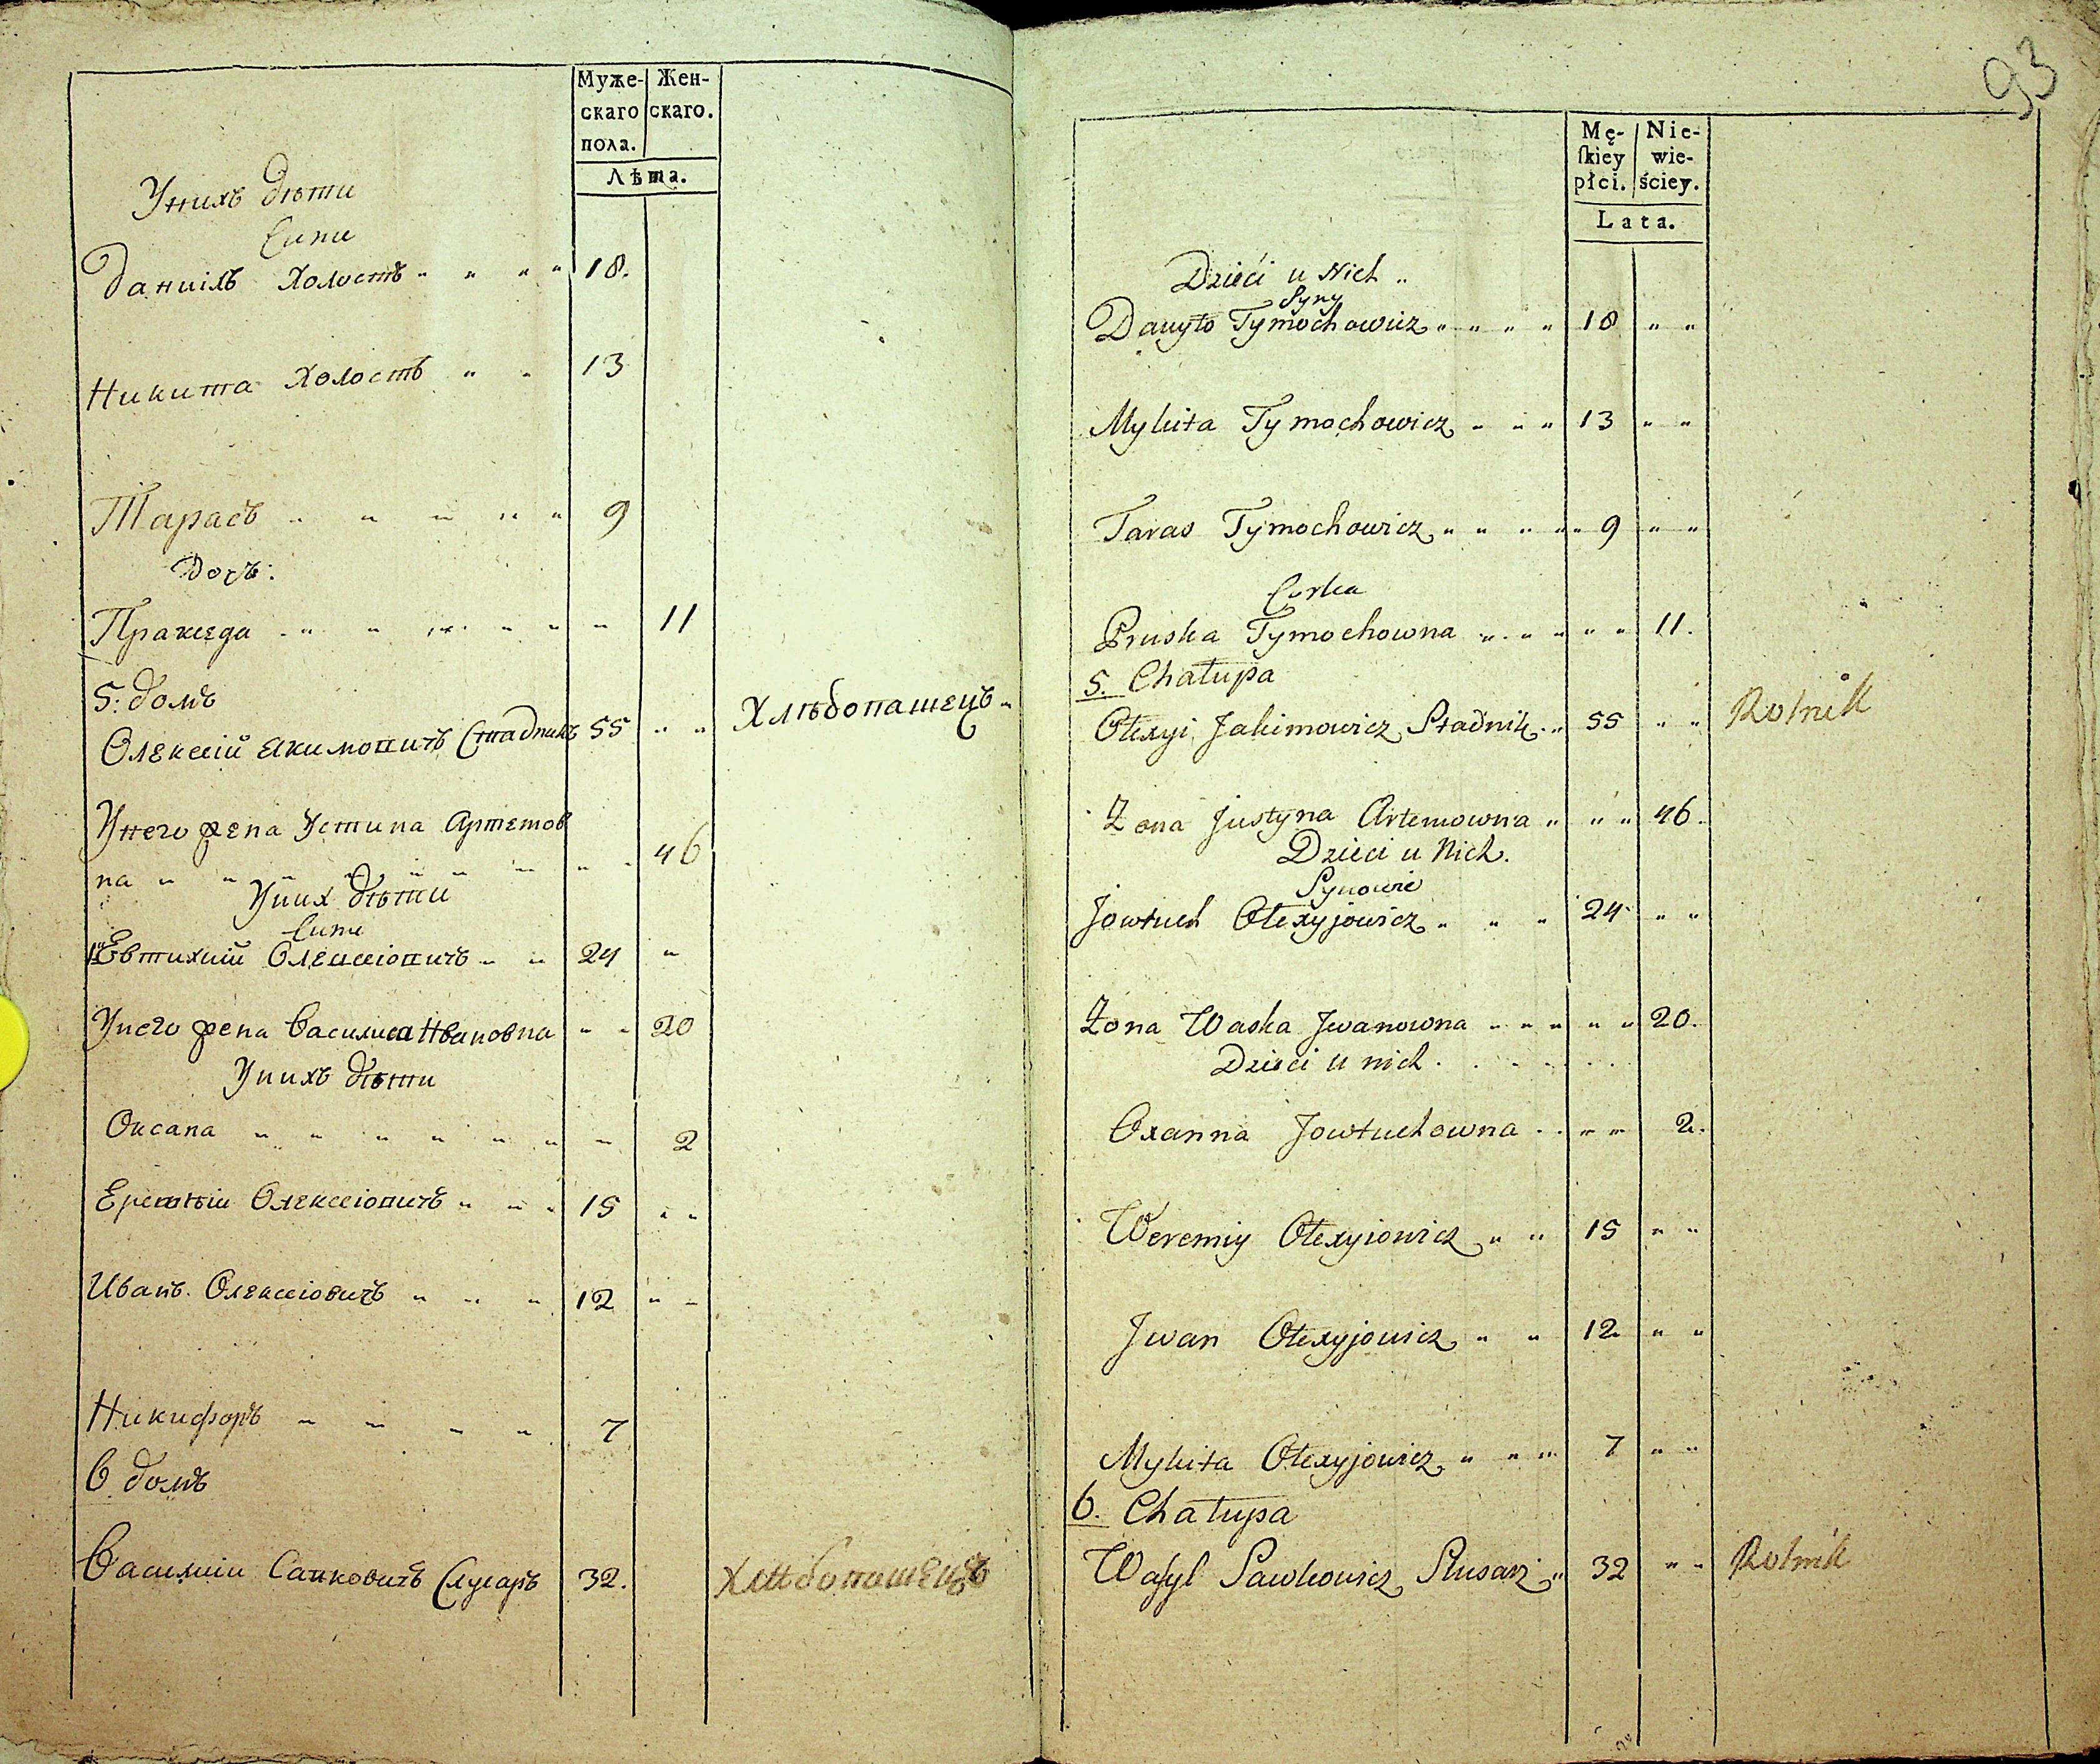 Муже- Жен-
скаго скаго.
пола.
Лѣта.
Унихъ дѣти
Сини
Даниілъ Холостъ „ „ „ „ 18.
Никита Холостъ „ „ 13
Тарасъ „ „ „ „ „ 9
Дочъ:
Пракседа „ „ „ „ „ „ 11
5: домъ
Олексій Якимовичъ Стадникъ 55 „ „ Хлѣбопашецъ „
Унего жена Устина Артемов
на „ „ „ „ „ „ „ „ 46
Уних дѣти
Сини
1й Евтихий Олексіовичъ „ „ 24 „
Унего жена Василиса Ивановна „ „ 20
Унихъ дѣти
Оксана „ „ „ „ „ „ „ 2
Еремѣй Олексіовичъ „ „ „ 15 „ „
Иванъ Олексіовичъ „ „ „ 12 „ „
Никифоръ „ „ „ „ 7
6 домъ
Василии Савковичъ Слусаръ 32. Хлѣбопашецъ
93
Mę- Nie-
ſkiey wie-
płci. ściey.
Lata.
Dzieći u Nich „
Syny
Danyło Tymochowicz „ „ „ „ 18 „ „
Mykita Tymochowicz „ „ „ 13 „ „
Taras Tymochowicz „ „ „ „ „ 9 „ „
Corka
Pruska Tymochowna „ „ „ „ „ 11.
5. Chałupa
Ołexyi Jakimowicz Stadnik „ „ 55 „ „ Rolnik
Żona Justyna Artemowna „ „ „ 46.
Dzieci u Nich.
Synowie
Jowtuch Ołexyjowicz „ „ „ 24 „ „
Żona Waska Jwanowna „ „ „ „ „ 20.
Dzieci u nich . . . . . .
Oxanna Jowtuchowna . . „ „ 2.
Weremiy Ołexyiowicz „ „ 15 „ „
Jwan Ołexyjowicz „ „ 12 „ „
Mykita Ołexyjowicz „ „ „ 7 „ „
6. Chałupa
Waſyl Sawkowicz Slusarz „ 32 „ „ Rolnik